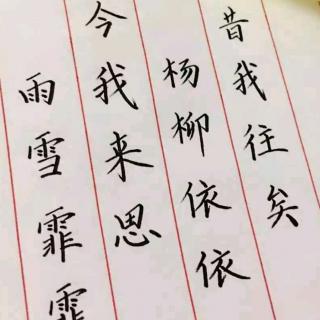 昔我往矣
杨柳依依
今我来思
雨雪霏霏